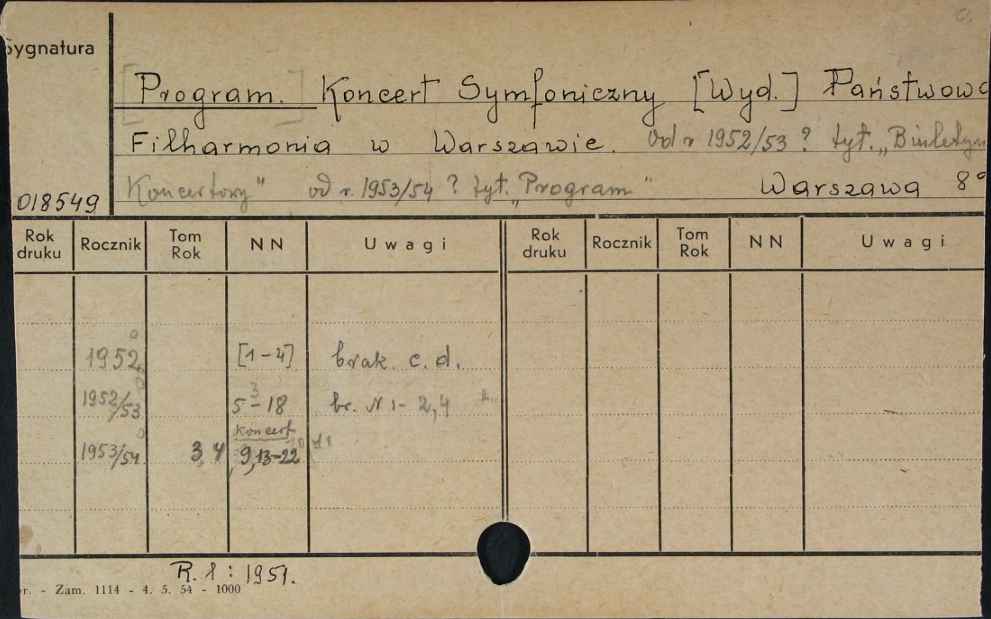 Sygnatura
[Program.] Koncert Symfoniczny [Wyd.] Państwowa
Filharmonia w Warszawie. Od r. 1952/53 ? tyt. „Biuletyn
Koncertowy" od r. 1953/54 ? tyt. „Program" Warszawa 8°
018549
Rok druku Rocznik Tom Rok NN Uwagi Rok druku Rocznik Tom Rok NN Uwagi
1952 [1-4] brak. c. d.
1952/53 5-18 br. N 1-2,4
koncert
1953/54 3, 4, 9, 13-22
R. 1 : 1951.
r. - Zam. 1114 - 4. 5. 54 - 1000